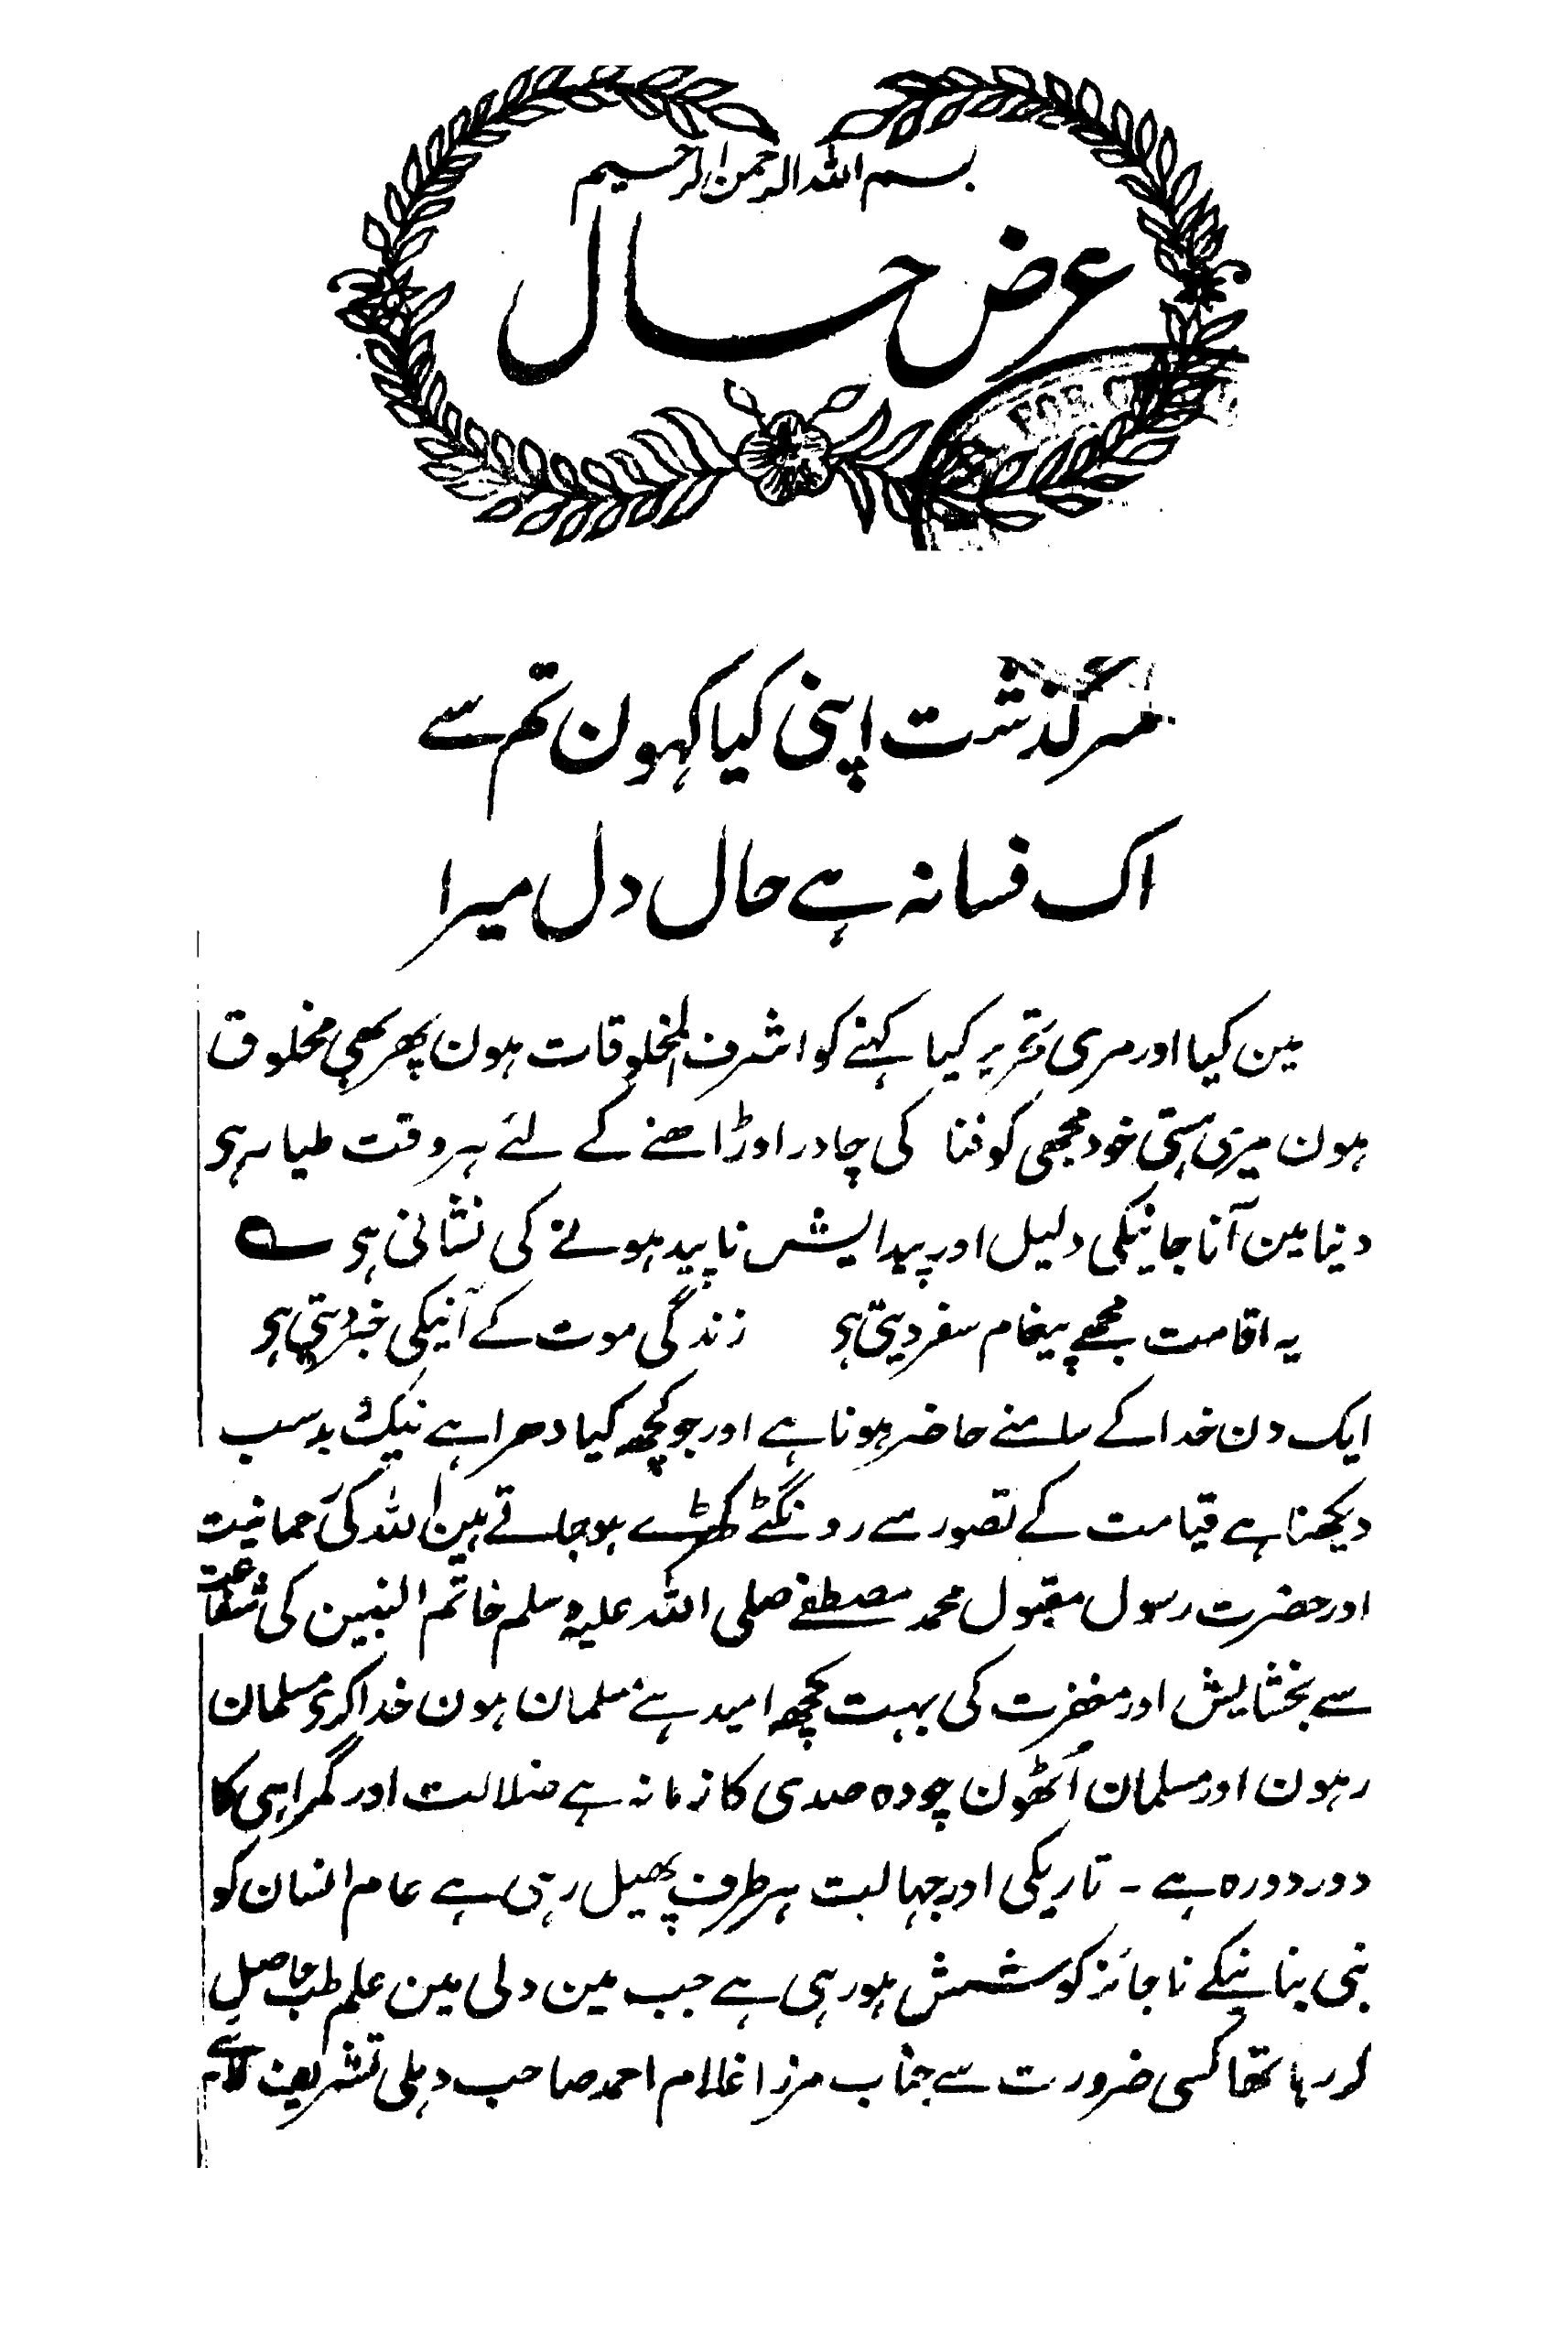 بسم اللہ الرحمن الرحیم
عرض حال
FOR
سرگذشت اپنی کیا کہون تم سے
اک فسانہ ہے حال دل میرا
مین کیا اور مری تحریر کیا کہنے کو اشرف المخلوقات ہون پھر بھی مخلوق
ہون میری ہستی خود مجھی کو فنا کی چادر اوڑاھنے کے لئے ہر وقت طیار ہی
دنیا مین آنا جانیکی دلیل اور پیدایش ناپید ہونے کی نشانی ہی ؎
یہ اقامت مجھے پیغام سفر دیتی ہی زندگی موت کے آنیکی خبر دیتی ہی
ایک دن خدا کے سامنے حاضر ہونا ہے اور جو کچھ کیا دھرا ہے نیک و بد سب
دیکھنا ہے قیامت کے تصور سے رونگٹے کھڑے ہو جاتے ہین اللہ کی رحمانیت
اور حضرت رسول مقبول محمد مصطفے صلی اللہ علیہ وسلم خاتم النبین کی شفاعت
سے بخشایش اور مغفرت کی بہت کچھ امید ہے مسلمان ہون خدا کری مسلمان
رہون اور مسلمان اُٹھون چودہ صدی کا زمانہ ہے ضلالت اور گمراہی کا
دور دورہ ہے - تاریکی اور جہالت ہر طرف پھیل رہی ہے عام انسان کو
نبی بنانیکے ناجائز کوشش ہو رہی ہے جب مین دلی مین علم طب حاصل
کر رہا تھا کسی ضرورت سے جناب مرزا غلام احمد صاحب دہلی تشریف لائے